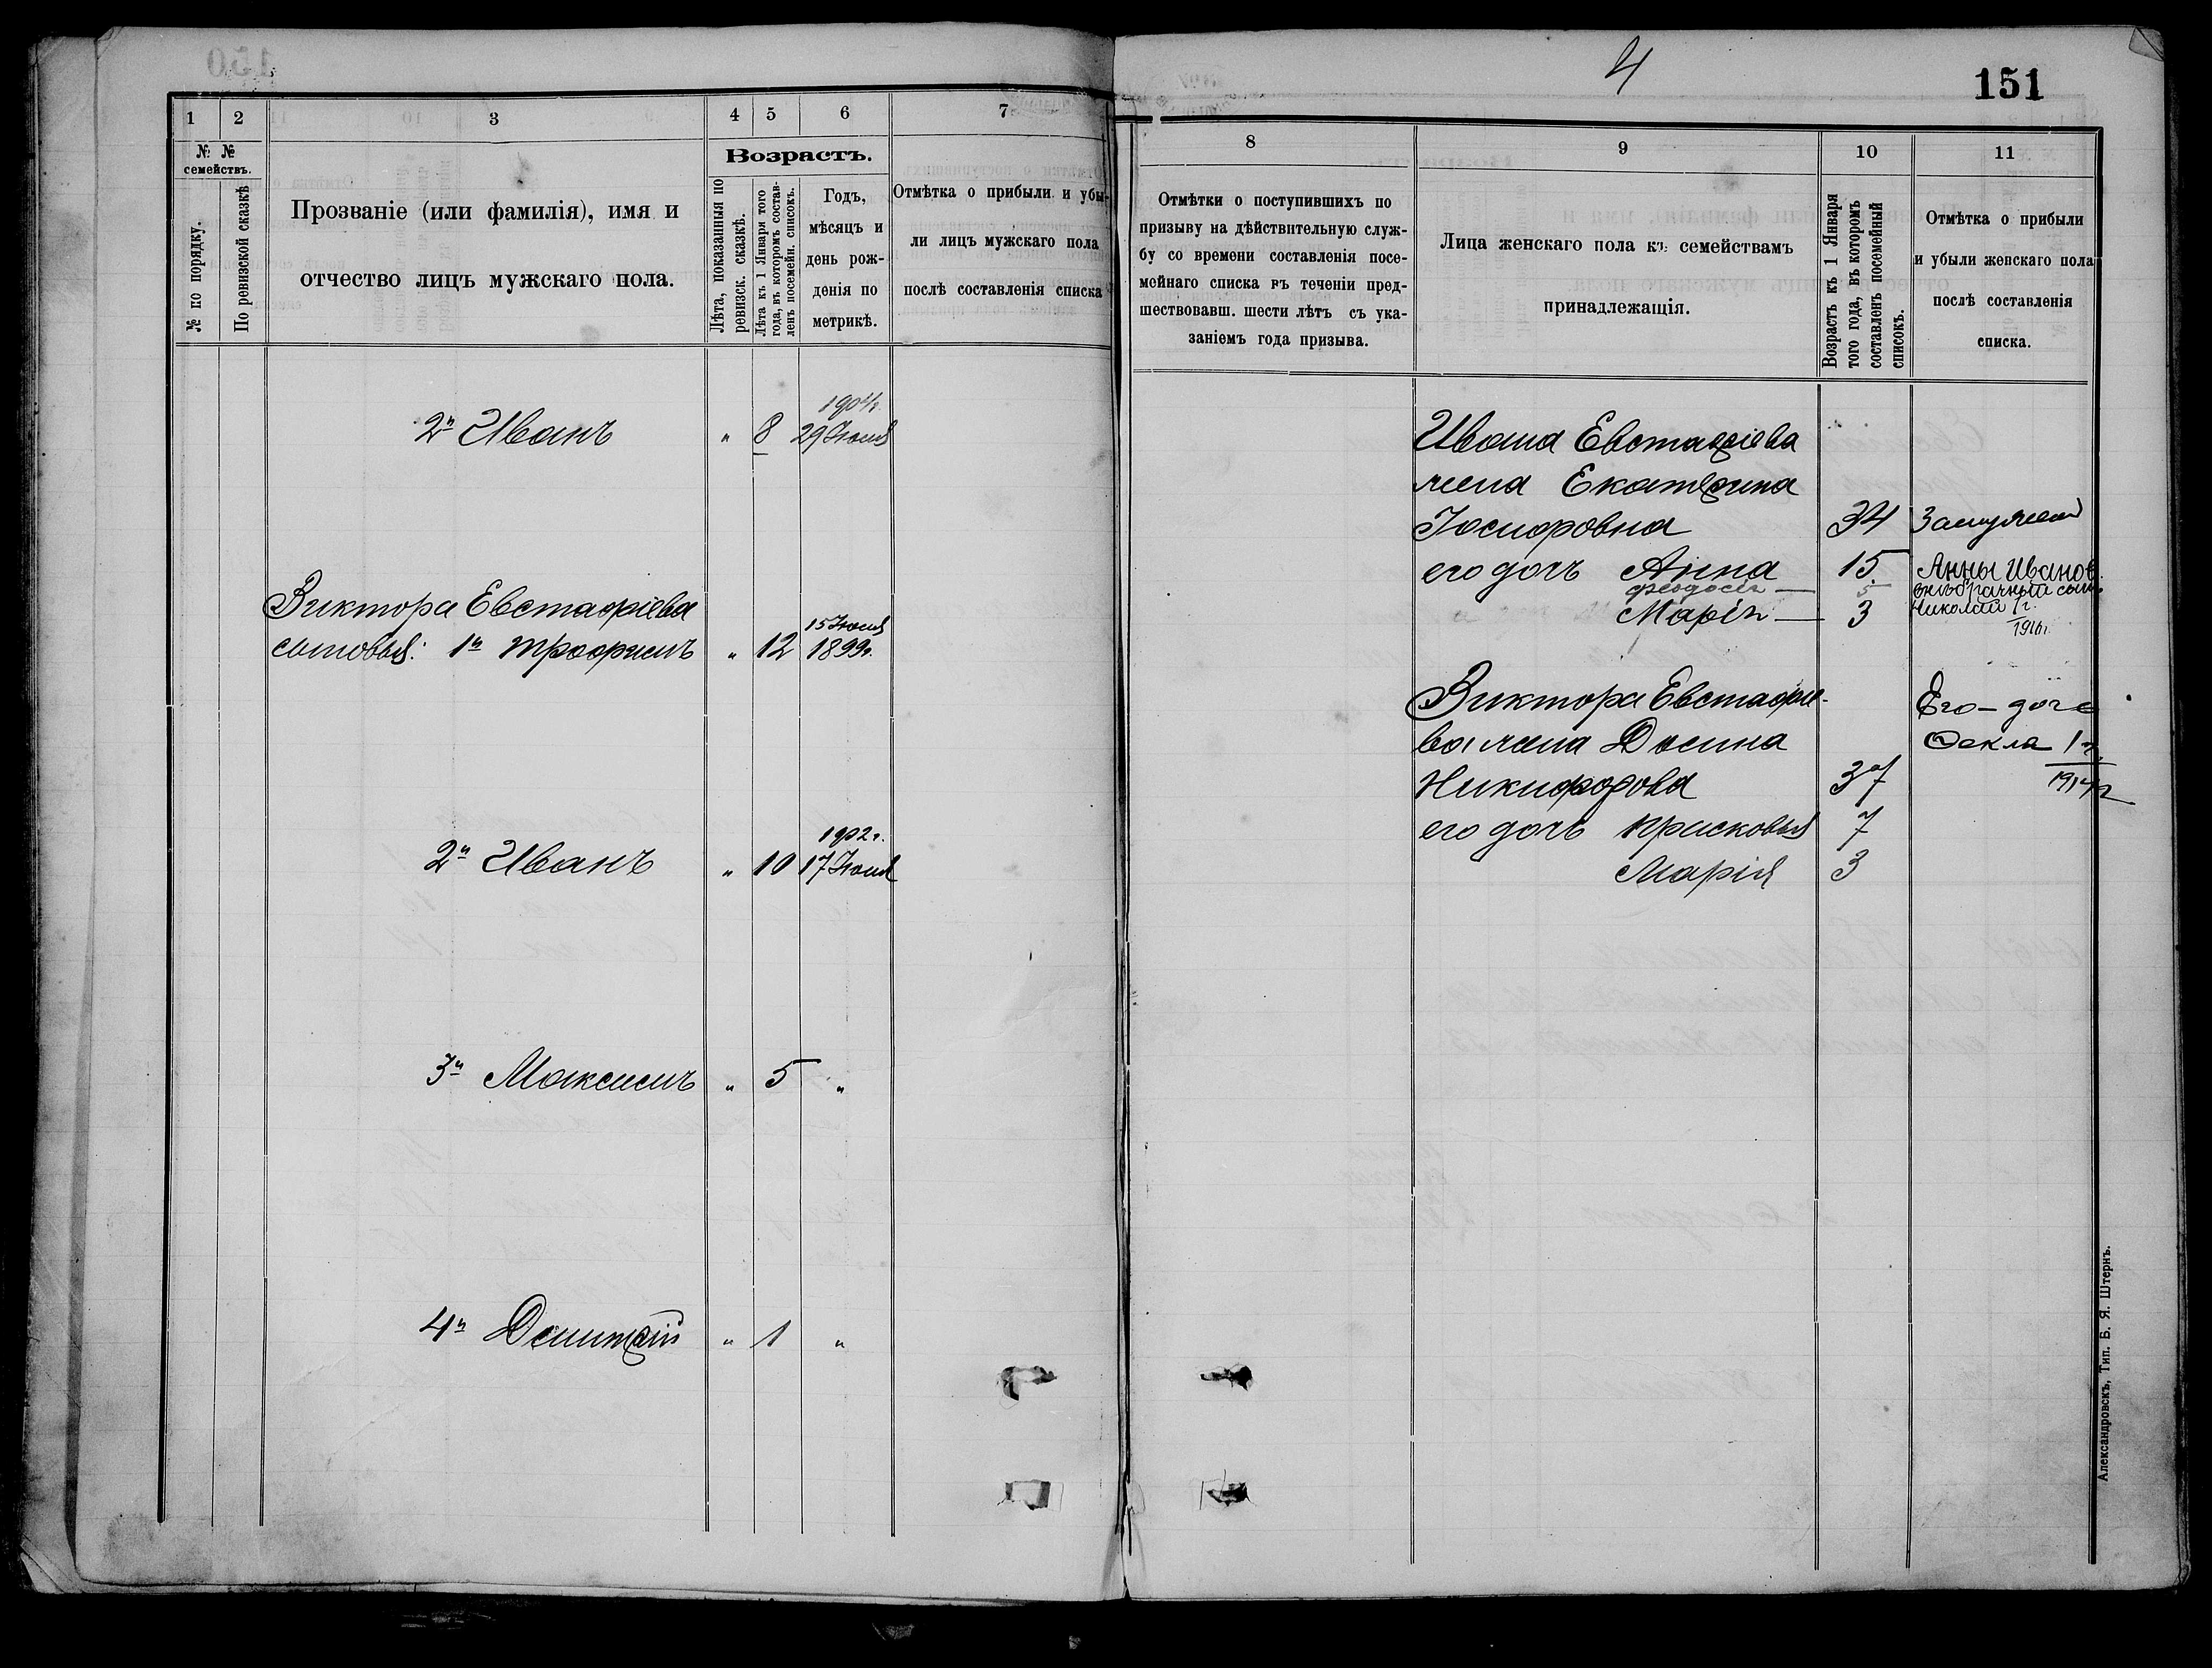 4
151
1
2
3
4
5
6
7
№ №
семействъ.
№ по порядку.
По ревизской сказкѣ
Прозваніе (или фамилія), имя и
отчество лицъ мужскаго пола.
Возрастъ.
Лѣта, показанныя по
ревизск. сказкѣ.
Лѣта къ 1 Января того
года, въ которомъ состав-
ленъ посемейн. списокъ.
Годъ,
мѣсяцъ и
день рож-
денія по
метрикѣ.
Отмѣтка о прибыли и убы-
ли лицъ мужскаго пола
послѣ составленія списка
2й Иванъ " 8 1904г.
29 Іюня
Виктора Евстафіева
сыновья: 1й Трофимъ " 12 15 Іюля
1899г.
2й Иванъ " 10 1902г.
17 Іюня
3й Максимъ " 5 "
4й Димитрій " 1 "
8
9
10
11
Отмѣтки о поступившихъ по
призыву на дѣйствительную служ-
бу со времени составленія посе-
мейнаго списка въ теченіи пред-
шествовавш. шести лѣтъ съ ука-
заніемъ года призыва.
Лица женскаго пола къ семействамъ
принадлежащія.
Возрастъ къ 1 Января
того года, въ которомъ
составленъ посемейный
списокъ.
Отмѣтка о прибыли
и убыли женскаго пола
послѣ составленія
списка.
Ивана Евстафіева
жена Екатерина
34 Замужем
его дочь Анна 15 Анны Иванов.
Феодосія — 5 внѣбрачный сынъ
Марія — 3 Николай 1 г.
1916г.
Виктора Евстафіе- Его - доче
ва жена Домна Фекла 1 г.
Никифорова 37 1914г
его дочь Прасковья 7
Марія 3
Александровскъ, Тип. Б. Я. Штернъ.